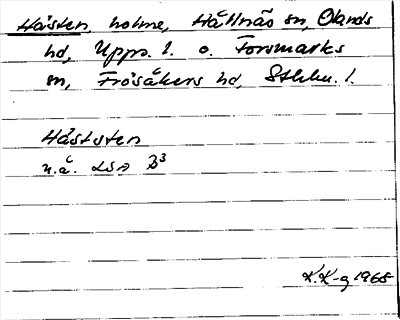 Håsten, holme, Hållnäs sn, Olands
hd, Upps. l. o. Forsmarks
sn, Frösåkers hd, Sthlm. l.
Håststen
n.å. LSA B3
K.K-g 1965